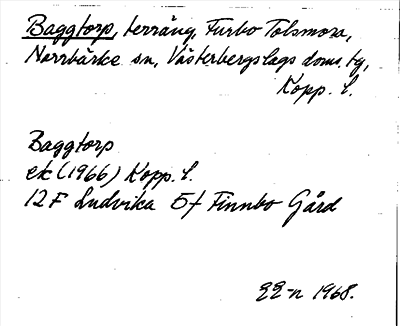 Baggtorp, terräng, Furbo Tolsmora,
Norrbärke sn, Västerbergslags doms. tg,
Kopp. l.
Baggtorp
ek (1966) Kopp. l.
12 F Ludvika 5f Finnbo Gård
1968.